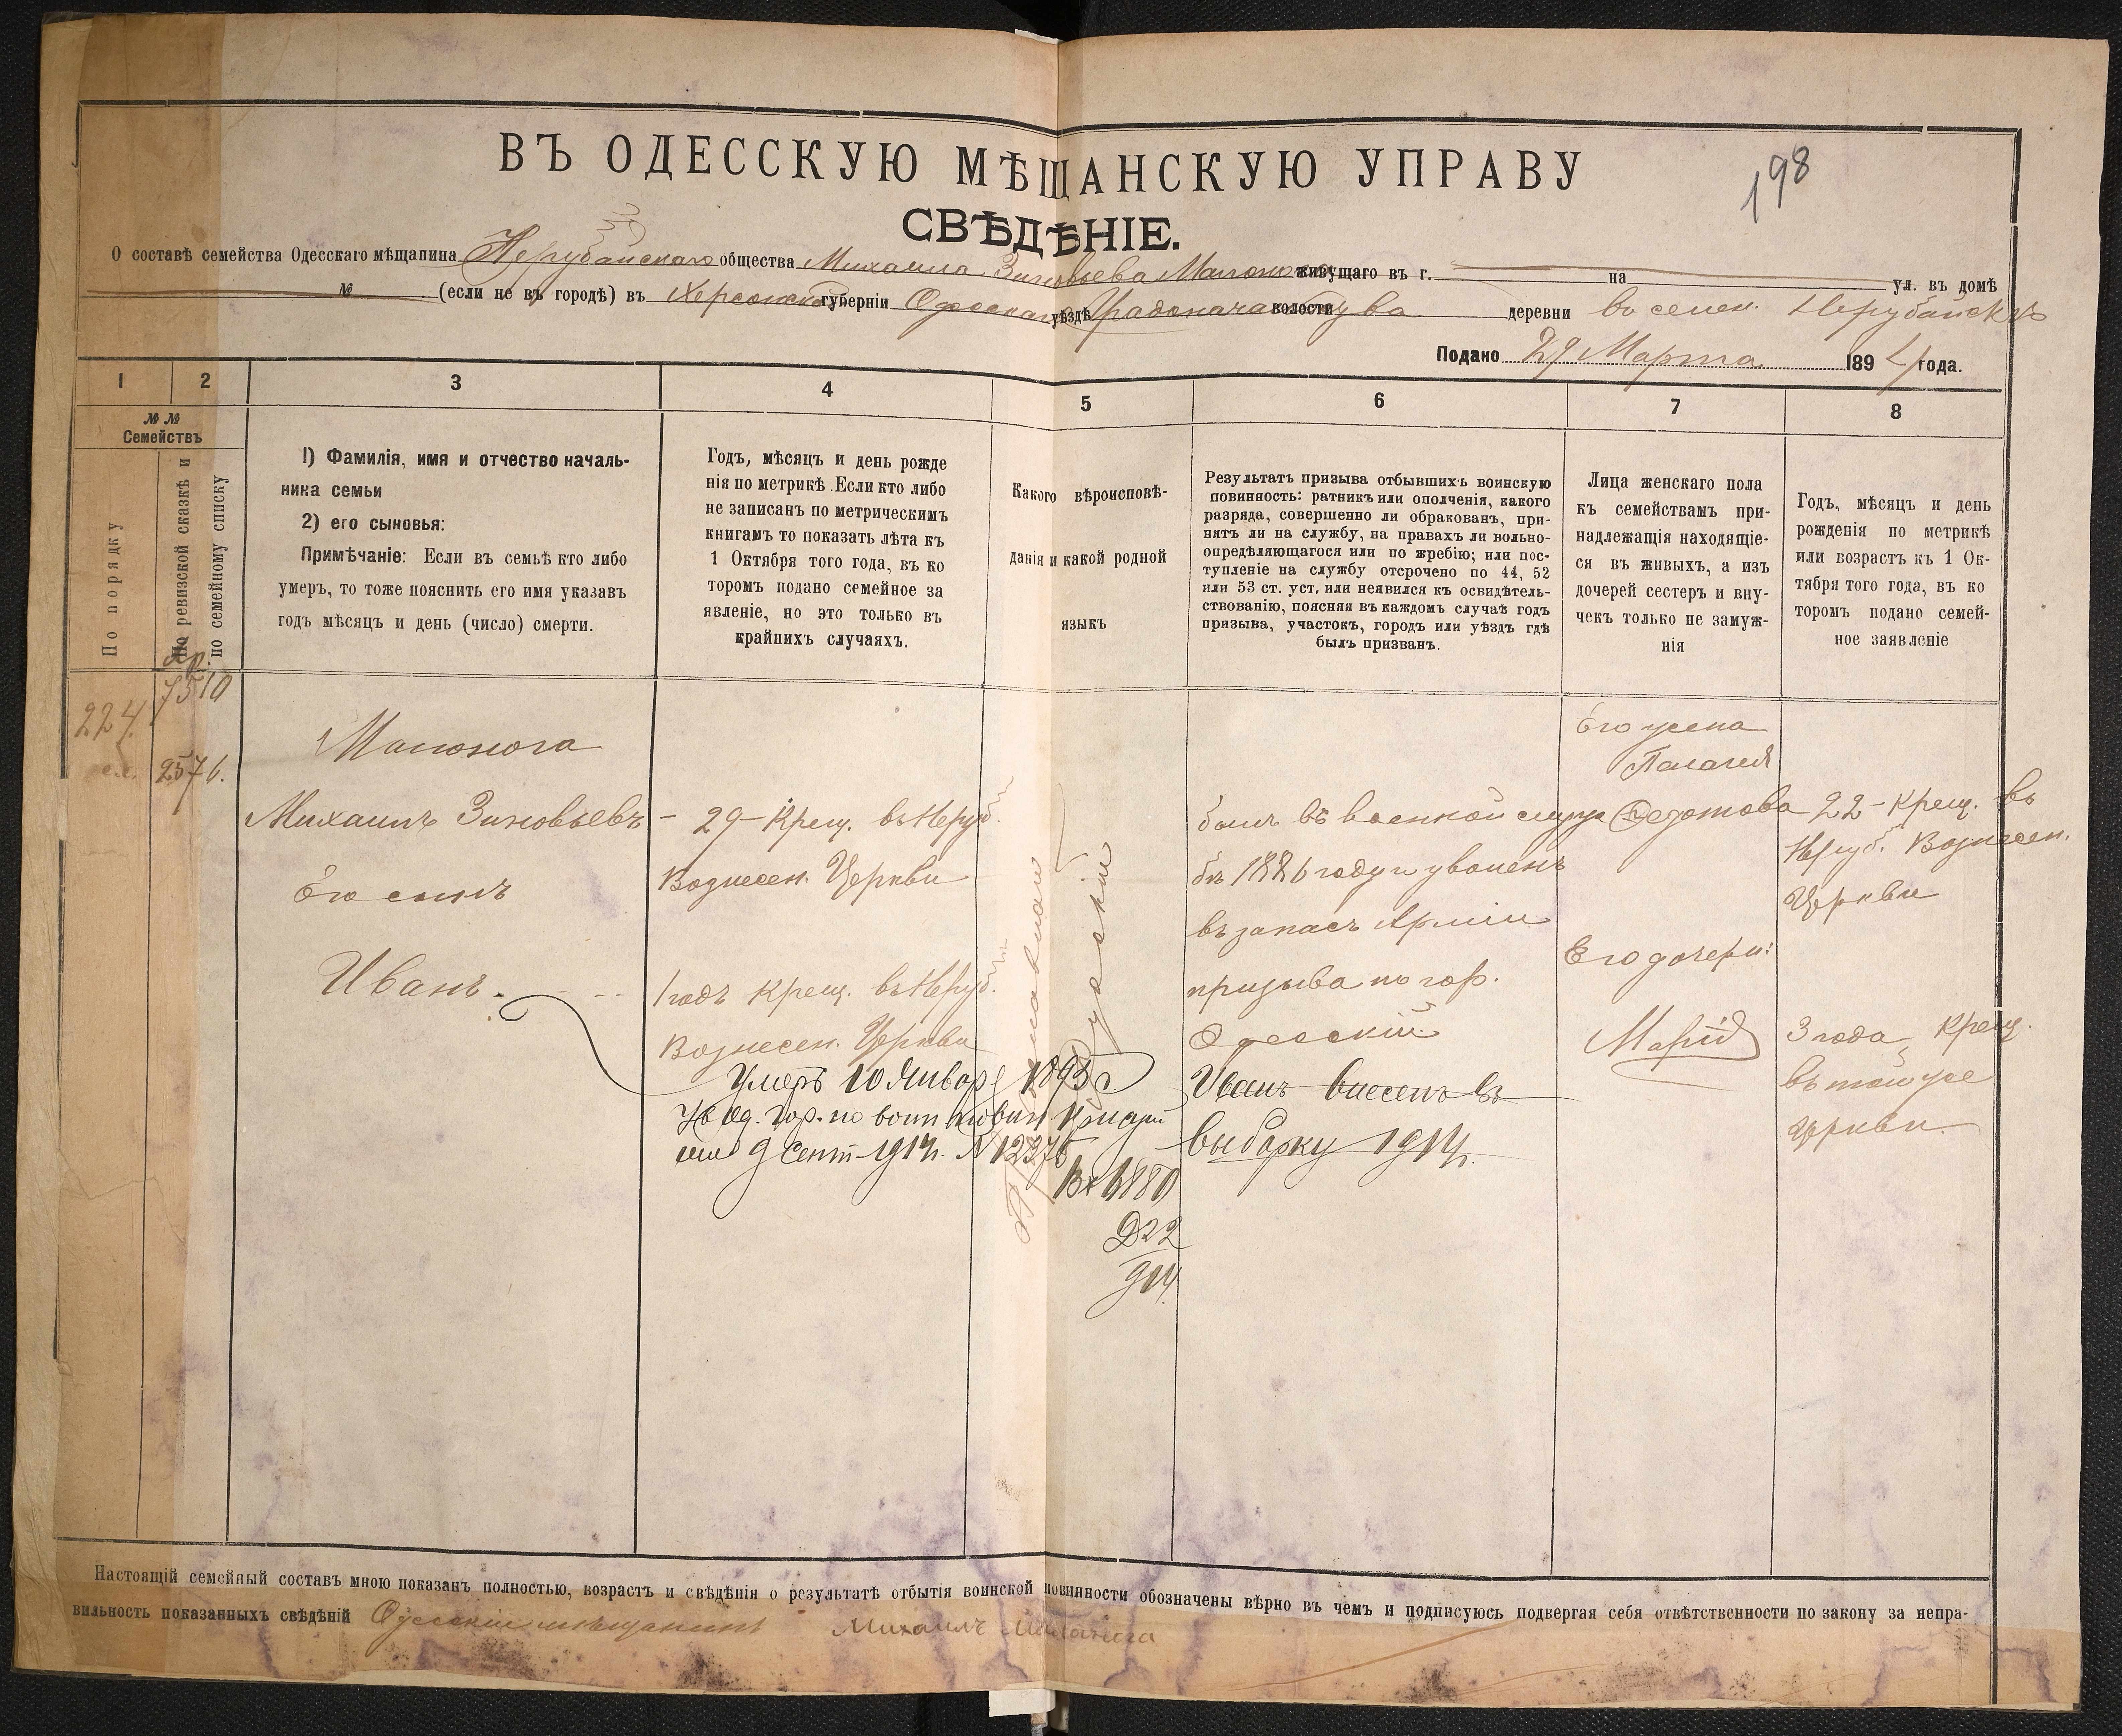 198
ВЪ ОДЕССКУЮ МѢЩАНСКУЮ УПРАВУ
СВѢДѢНІЕ.
О составѣ семейства Одесскаго мѣщанина Нерубайскаго общества Михаила Зиновьева живущаго въ г. на ул. въ домѣ
№ (если не въ городѣ) въ Херсонской губерніи Одесскаго уѣздѣ Градоначальства волости деревни въ селен. Нерубайскѣ
Подано 29 Марта 189 года.
1 2 3 4 5 6 7 8
№ №
Семействъ
По порядку
По ревизской сказкѣ и
по семейному списку
1) Фамилія, имя и отчество началь-
ника семьи
2) его сыновья:
Примѣчаніе: Если въ семьѣ кто либо
умеръ, то тоже пояснить его имя указавъ
годъ мѣсяцъ и день (число) смерти.
Годъ, мѣсяцъ и день рожде
нія по метрикѣ .Если кто либо
не записанъ по метрическимъ
книгамъ то показать лѣта къ
1 Октября того года, въ ко
торомъ подано семейное за
явленіе, но это только въ
крайнихъ случаяхъ.
Какого вѣроисповѣ-
данія и какой родной
языкъ
Результатъ призыва отбывшихъ воинскую
повинность: ратникъ или ополченія, какого
разряда, совершенно ли обракованъ, при-
нятъ ли на службу, на правахъ ли вольно-
опредѣляющагося или по жребію; или пос-
тупленіе на службу отсрочено по 44, 52
или 53 ст. уст. или неявился къ освидѣтель-
ствованію, поясняя въ каждомъ случаѣ годъ
призыва, участокъ, городъ или уѣздъ гдѣ
былъ призванъ.
Лица женскаго пола
къ семействамъ при-
надлежащія находящіе-
ся въ живыхъ, а изъ
дочерей сестеръ и вну-
чекъ только не замуж-
нія
Годъ, мѣсяцъ и день
рожденія по метрикѣ
или возрастъ къ 1 Ок-
тября того года, въ ко
торомъ подано семей-
ное заявленіе
224.
7510
2576.
Малонога
Михаилъ Зиновьевъ
Его сынъ
Иванъ.
29 - Крещ. въ Неруб.
Вознесен. Церкви
1 годъ Крещ. въ Неруб.
Вознесен. Церкви
Умеръ 10 Января 1895 г
Ув Од. Гор. по воин повин.
9 Сент 1914. N 12376
Вх 6880
Д22
914.
Православный
Русскій
былъ въ военной службѣ
въ 1886 году и уволенъ
въ запасъ Арміи
призыва по гор.
Одесскій
Иванъ внесенъ въ
выборку 1914 г.
Его жена
Палагея
Федотова
Его дочери:
Марія
22 - Крещ. въ
Неруб. Вознесен.
Церкви
3 года Крещ.
въ той же
церкви.
Настоящій семейный составъ мною показанъ полностью, возрастъ и свѣдѣнія о результатѣ отбытія воинской повинности обозначены вѣрно въ чемъ и подписуюсь подвергая себя отвѣтственности по закону за непра-
вильность показанныхъ свѣдѣній Одесскій мѣщанинъ Михаилъ